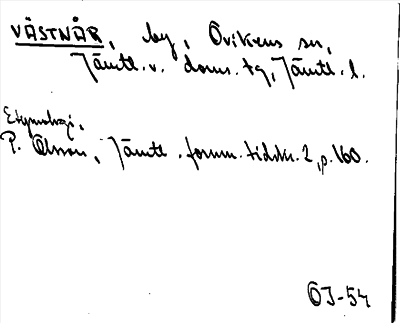 VÄSTNÅR, by, Ovikens sn,
Jämtl. v. doms. tg, Jämtl. l.
Etymologi.
P. Olsson, Jämtl. fornm. tidskr. 2, p. 160.
OJ-54